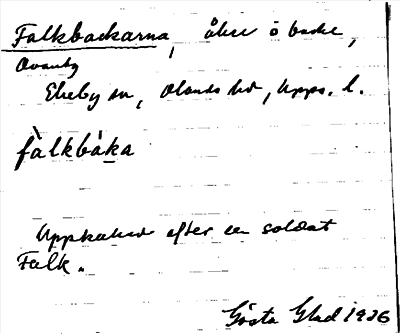 Falkbackarna, åker o backe,
Ovanby
Ekeby sn, Olands hd, Upps. l.
fàlkbáka
Uppkallad efter en soldat
Falk.
Gösta Glad 1926